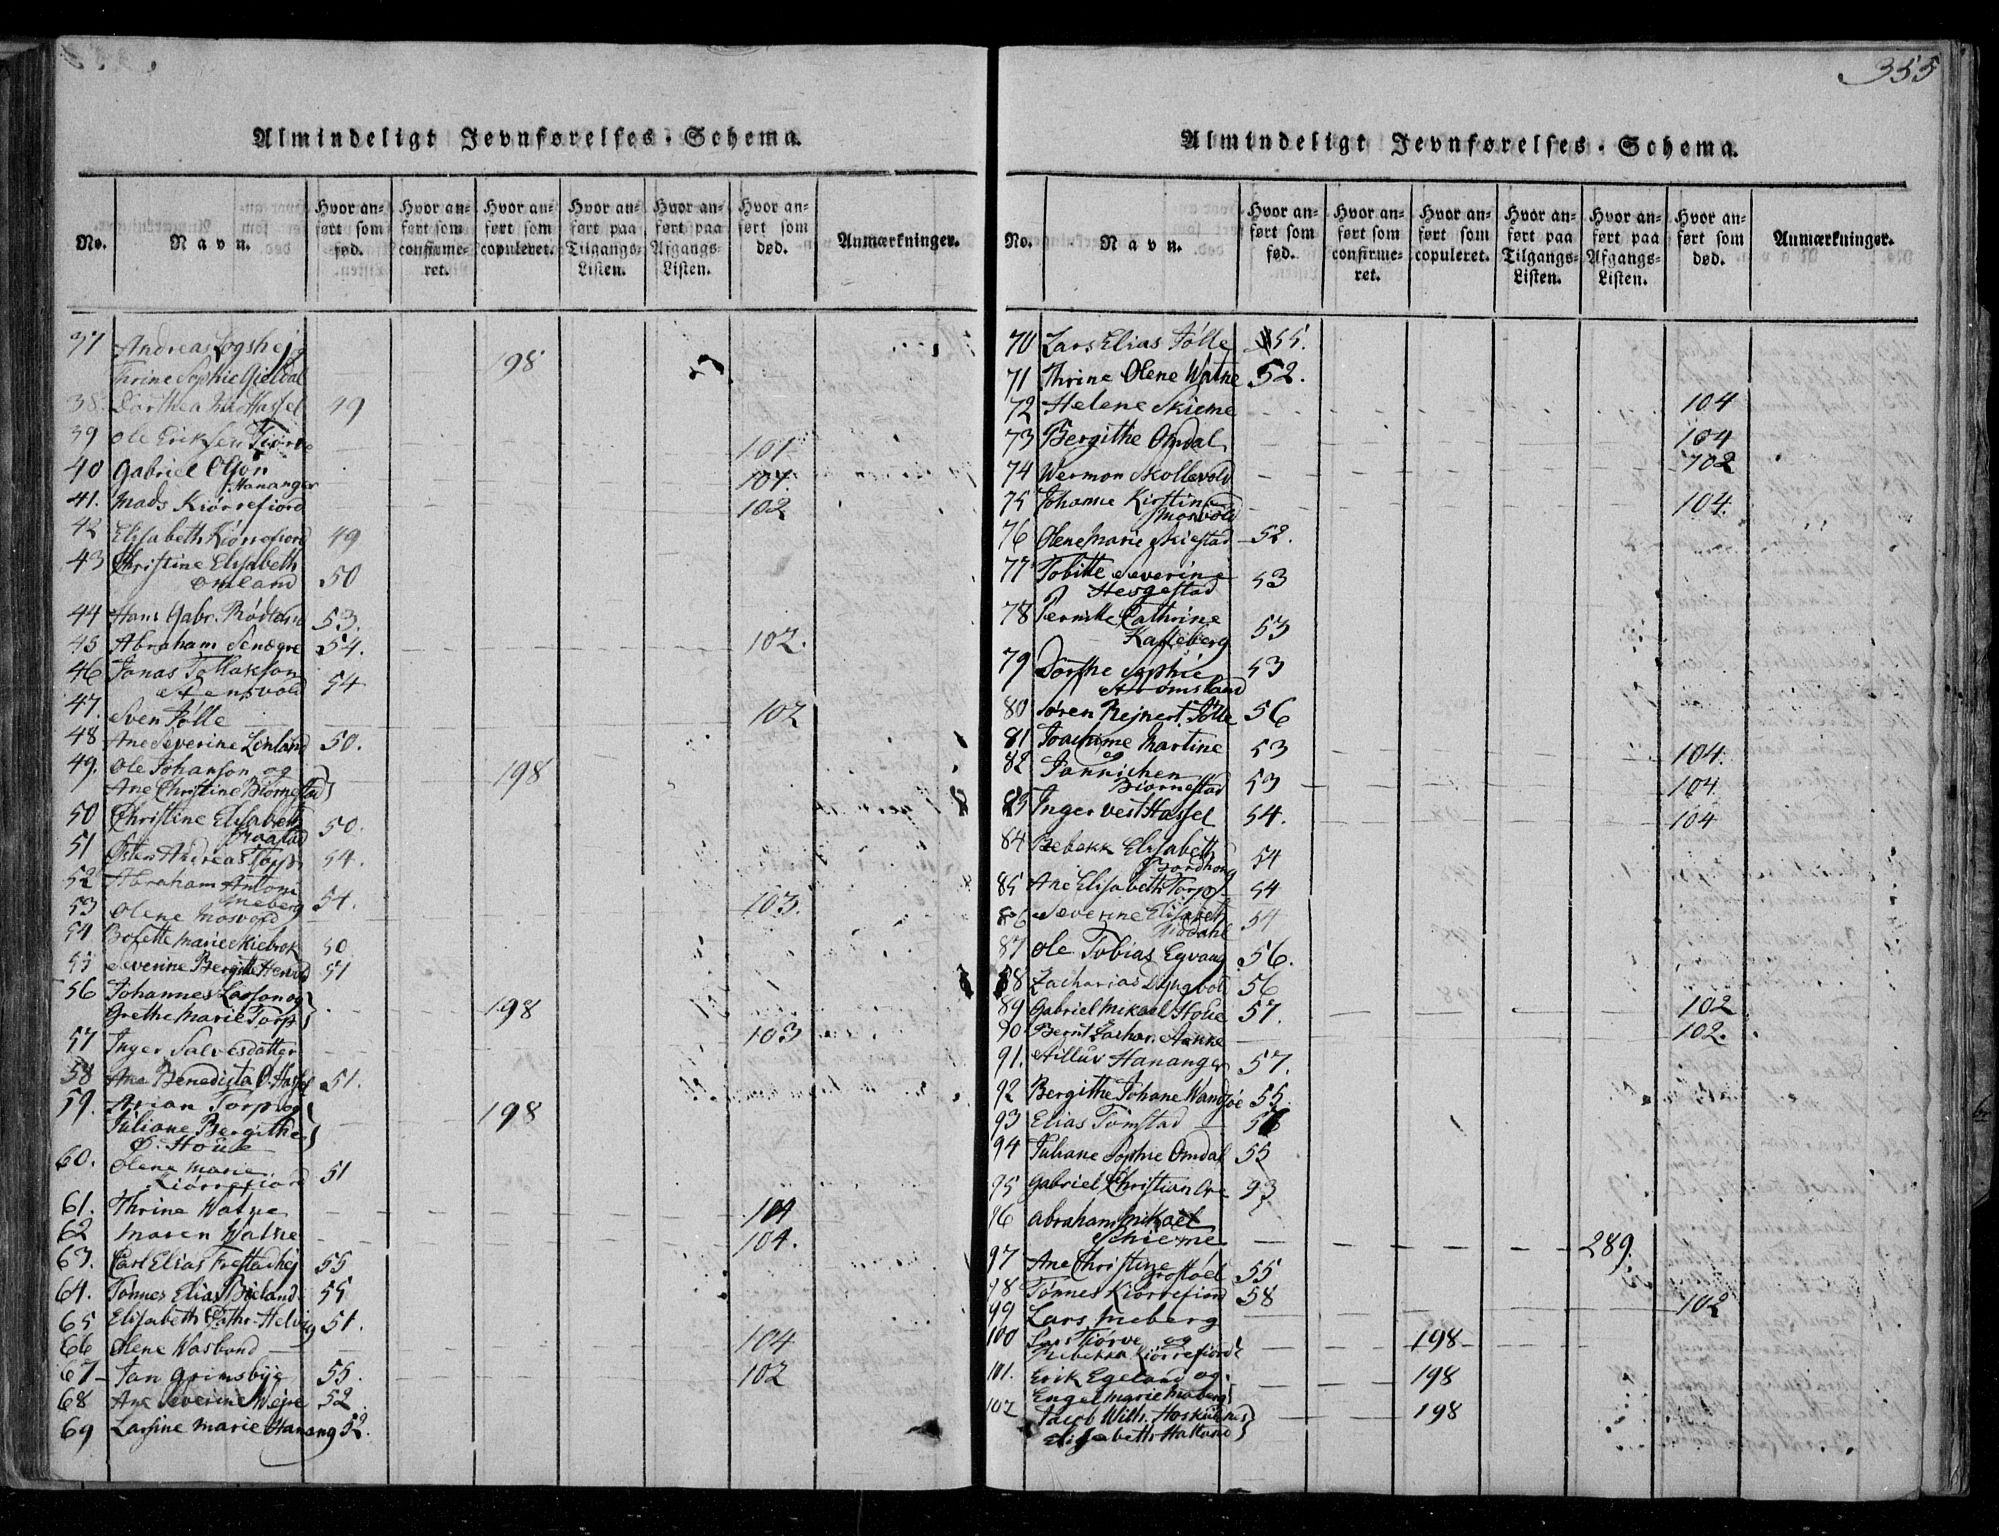 355
Almindeligt Jevnførelses-Schema.
No.
Navn.
Hvor anført som fød.
Hvor anført som confirmeret.
Hvor anført som copuleret.
Hvor anført paa Tilgangs-Listen.
Hvor anført paa Afgangs-Listen.
Hvor anført som død.
Anmærkninger.
37 Andreas Logshej
Thrine Sophie Gieldal 198
38. Dorthea Hassel 49
39 Ole Eriksen Tjørve 101
40 Gabriel Olson
Hananger 104.
41. Mads Kiørrefiord 102
42 Elisabeth Kiørrefiord 49
43 Christine Elisabeth
Omland 50
44 Hans Gabr. Rødland 53.
45 Abraham Penægre 54. 102.
46 Jonas Tollakson
Stensvold 54
47. Sven Jølle 102
48 Ane Severine Linland 50.
49. Ole Johanson og
Ane Christine Biørnestad 198
50 Christine Elisabeth
50.
51 Østen Andreas Torp 54.
52 Abraham Antoni
Meberg 54.
53 Olene Mosvold 103.
54 Bolette Marie Skiebrok 50
55 Severine Bergitte 51
56 Johannes Larson og
Grethe Marie Torp 198
57 Inger Salvesdatter 103
58 Ane Benedicta O. Hassel 51.
59. Arian Torp og
Juliane Bergithe
Ø. Houe 198
60. Olene Marie
Kiørrefiord 51
61. Thrine Watne 104
62 Maren Watne 104.
63. Carl Elias Frestadhej 55
64. Tønnes Elias Biland 55
65 Elisabeth Cathr. Helvig 51.
66 Olene Wasbond 104
67 Jan Grimsbye 55. 102
68 Ane Severine Vejre 52
69 Larsine Marie Hanang 52.
Almindeligt Jevnførelses-Schema.
No.
Navn.
Hvor anført som fød.
Hvor anført som confirmeret.
Hvor anført som copuleret.
Hvor anført paa Tilgangs-Listen.
Hvor anført paa Afgangs-Listen.
Hvor anført som død.
Anmærkninger.
70 Lars Elias Jølle 55.
71 Thrine Olene Watne 52.
72 Helene Skieme 104
73 Bergithe Omdal 104
74 Wermon Skollevold 102
75 Johanne Kirstine
Mosvold 104.
76 Olene Marie Skiestad 52.
77 Tobitte Severine
Hesgestad 53
78 Pernille Cathrine
Kalleberg 53
79 Dorthe Sophie
Strømsland 53
80 Søren Rejnert Jølle 56
81 Joachime Martine 53 104.
og
82 Jannichen
Biørnestad 53 104
83 Inger Vest Hassel 54. 104
84 Rebekk Elisabeth
54
85 Ane Elisabeth Torp 54
86 Severine Elisabeth
54
87 Ole Tobias Egvang 56.
88 Zacharias Dyngvoll 56
89 Gabriel Mikael Houe 57. 102
90 Bernt Zachar. 102.
91. Ailluv Hananger 57.
92 Bergithe Johane Wandsøe 55.
93 Elias Tomstad 56
94 Juliane Sophie Omdal 55
95 Gabriel Christian Ore 93
96 Abraham Mikael
Schieme 289.
97 Ane Christine
55
98 Tønnes Kiørrefiord 58
99 Lars Meberg 102
100 Lars Tjørve og
Rebekka Kiørrefiord 198
101. Erik Egeland og
Engel Marie Meberg 198
102 Jacob Wilh. 198
Elisabeth Halland